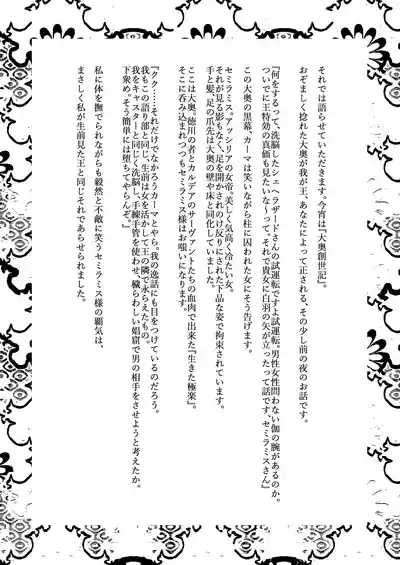 それでは語らせていただきます。今宵は『大奥創世記』。
おぞましく捻れた大奥が我が王、あなたによって正される、その少し前の夜のお話です。
『何をするって、洗脳したシェヘラザードさんの試運転ですよ試運転。男性女性問わない伽の腕があるのか、
ついでに王特効の真価も見たいな〜って、それで貴女に白羽の矢が立ったって話です、セミラミスさん』
この大奥の黒幕、カーマは笑いながら柱に囚われた女にそう告げます。
セミラミス。アッシリアの女帝。美しく気高く冷たい女。
それが見る影もなく、足を開かされのけ反りにされた下品な姿で拘束されています。
手と髪、足の爪先は大奥の壁や床と同化していました。
ここは大奥。徳川の者とカルデアのサーヴァントたちの血肉で出来た『生きた極楽』。
そこに呑み込まれつつもセミラミス様はお嗤いになります。
『クク……それだけでなかろうカーマとやら。我の逸話にも目をつけているのだろう。
我もこの語り部と同じ、生前は女を活かして王の隣で永らえたもの。
我をキャスターと同じく洗脳し、手練手管を使わせ、穢らわしい娼窟で男の相手をさせようと考えたか。
下衆め。そう簡単には堕ちてやらんぞ。』
私に体を撫でられながらも毅然と不敵に笑うセミラミス様の覇気は、
まさしく私が生前見た王と同じそれであらせられました。